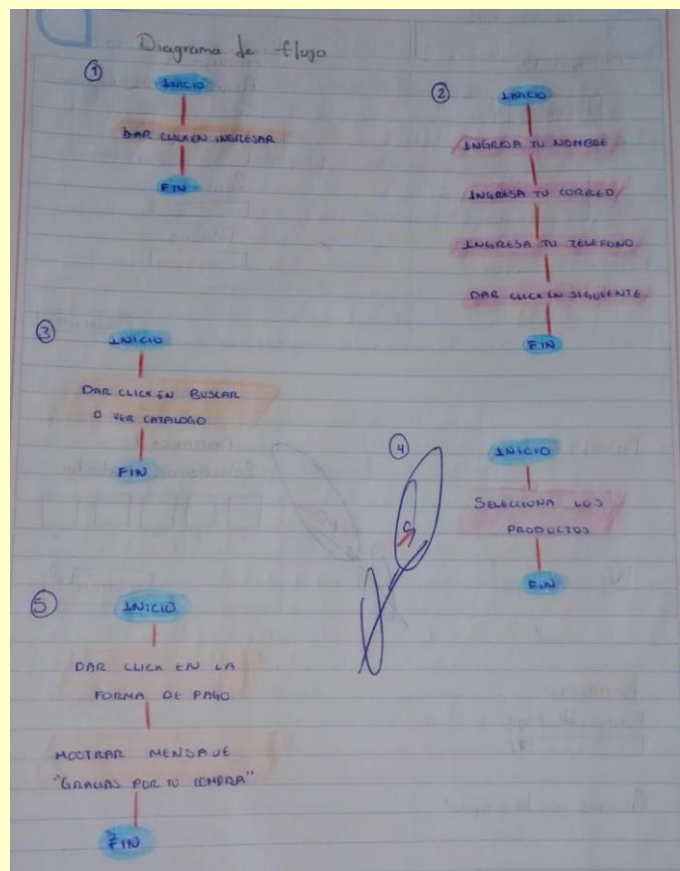 Diagrama de flujo
1
INICIO
DAR CLICK EN INGRESAR
FIN
2
INICIO
INGRESA TU NOMBRE
INGRESA TU CORREO
INGRESA TU TELEFONO
DAR CLICK EN SIGUIENTE
FIN
3
INICIO
DAR CLICK EN BUSCAR
O VER CATALOGO
FIN
4
INICIO
SELECCIONA LOS
PRODUCTOS
FIN
5
INICIO
DAR CLICK EN LA
FORMA DE PAGO
MOSTRAR MENSAJE
"GRACIAS POR TU COMPRA"
FIN